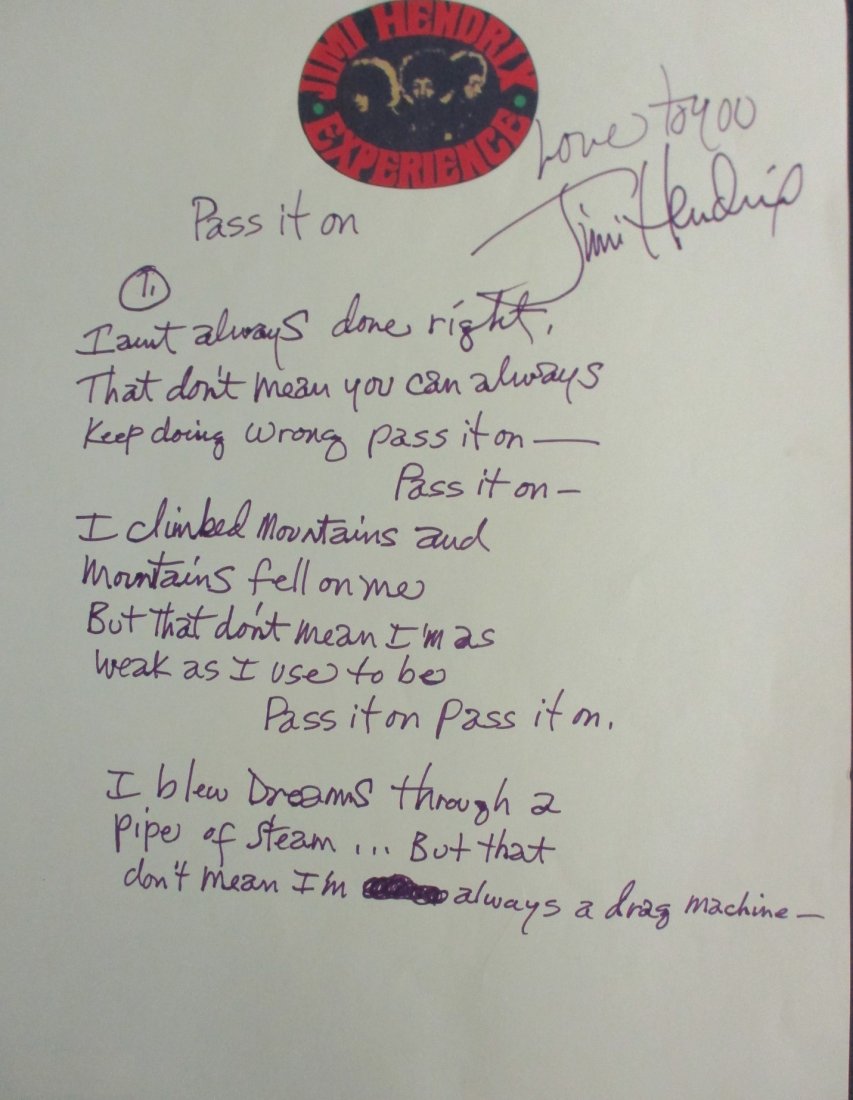 JIMI HENDRIX
EXPERIENCE
Love to you
Jimi Hendrix
Pass it on
1.
I aint always done right,
That don't mean you can always
Keep doing wrong pass it on —
Pass it on —
I climbed Mountains and
Mountains fell on me
But that don't mean I'm as
weak as I use to be
Pass it on Pass it on.
I blew Dreams through a
pipe of steam ... But that
don't mean I'm always a drag machine —